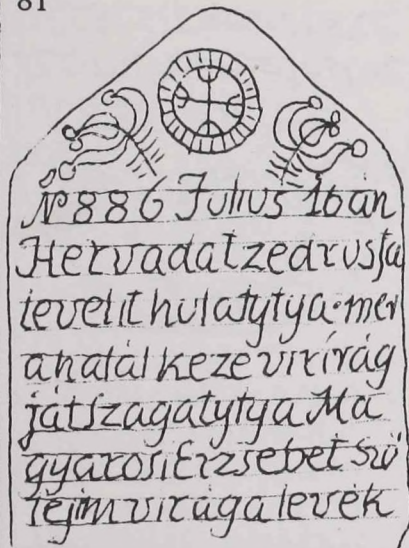 81
№ 886 Julius 16án
Hervadat zedrusfa
levelit hulatytya·mer
a halál keze virírág
ját szagatytya Ma
gyarosi Erzsebet szü
lejim virága levék